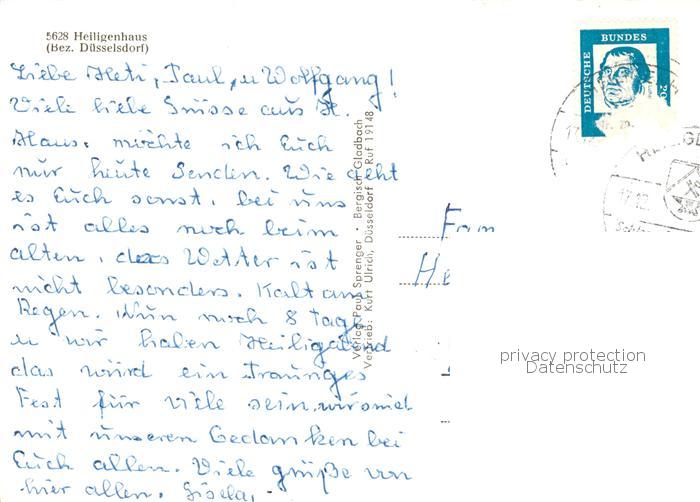 5628 Heiligenhaus
(Bez. Düsselsdorf)
Liebe Heti, Paul, u Wolfgang!
Viele liebe Grüsse aus H.
Haus. möchte ich Euch
nur heute Senden. Wie geht
es Euch sonst, bei uns
ist alles noch beim
alten, das Wetter ist
nicht besonders. Kalt und
Regen. Nun noch 8 Tage
u wir haben Heiligabend
das wird ein Trauriges
Fest für viele sein. wir sind
mit unseren Gedanken bei
Euch allen. Viele grüße von
hier allen. Gisela.
Verlag Paul Sprenger • Bergisch Gladbach
Vertrieb: Kurt Ulrich, Düsseldorf Ruf 19148
DEUTSCHE BUNDES
20
17.12.
Fam
He
privacy protection
Datenschutz